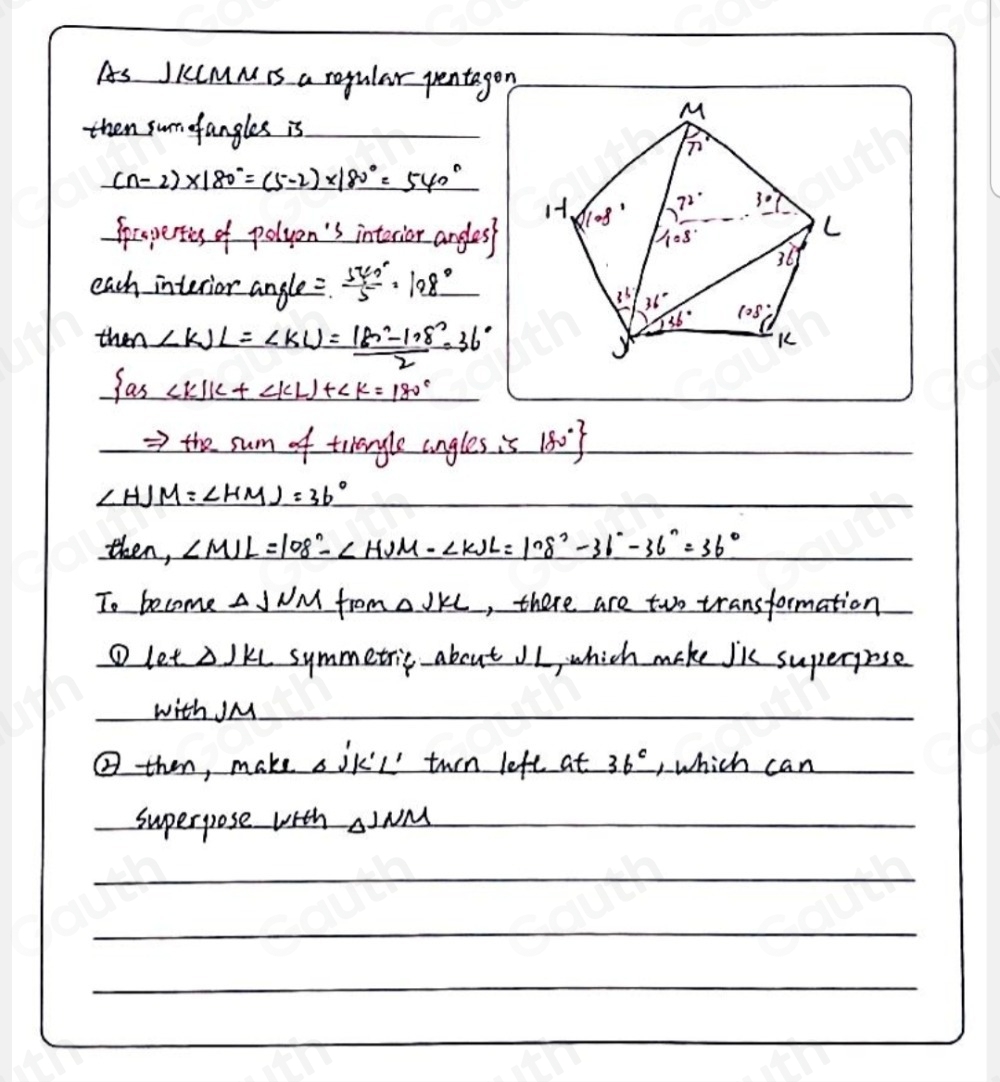 As JKLMN is a regular pentagon
then sum of angles is
(n-2)×180°=(5-2)×180°= 540°
{properties of polyon's interior angles}
each interior angle = 540°/5 = 108°
then ∠KJL = ∠KLJ = (180°-108°)/2 = 36°
{as ∠KJK + ∠KLJ + ∠K = 180°
⇒ the sum of triangle angles is 180°}
∠HJM = ∠HMJ = 36°
then, ∠MJL = 108° - ∠HJM - ∠KJL = 108° - 36° - 36° = 36°
To become △JNM from △JKL, there are two transformation
① let △JKL symmetric about JL, which make J'K superpose
with JM
② then, make △J'K'L' turn left at 36°, which can
superpose with △JNM
M
72°
H
108°
72°
L
108°
36°
36°
36°
108°
J
K
Gauth